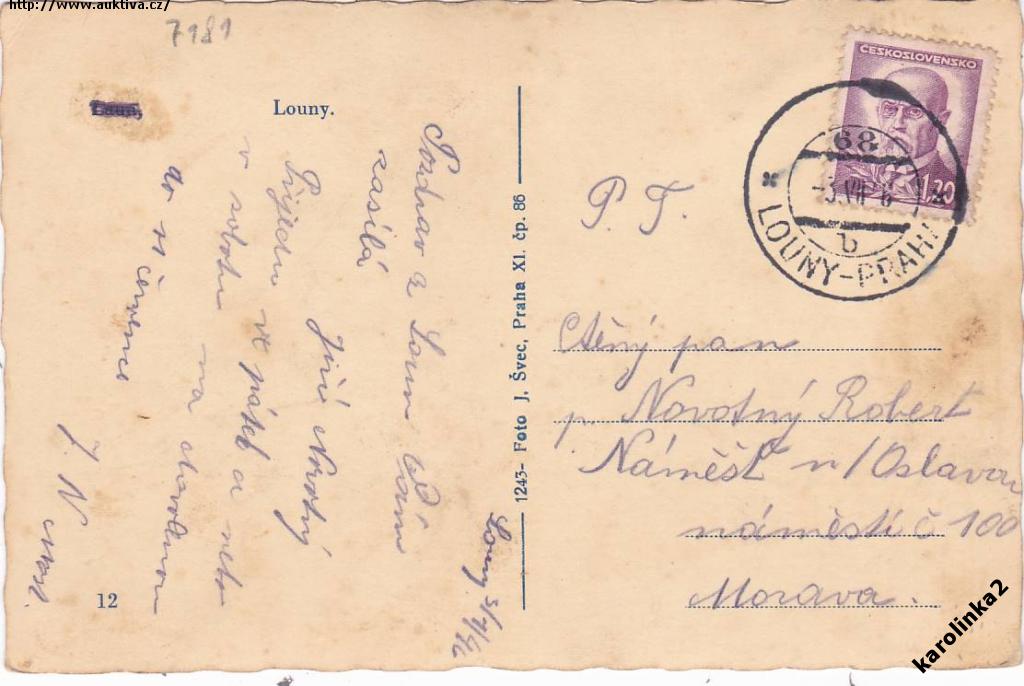 http://www.auktiva.cz/
7181
Laun,
Louny.
Louny 3/7/46
Pozdrav z Loun Vám
zasílá
Jiří Novotný
Přijedu v pátek a nebo
v sobotu na
do 11 července
J. N
12
1243- Foto J. Švec, Praha XI. čp. 86
ČESKOSLOVENSKO
1,20
68
-3.VII 6
b
LOUNY-PRAHA
P. T.
Ctěný pan
p. Novotný Robert
Náměšť n/Oslavou
náměstí č 100
Morava.
karolinka2